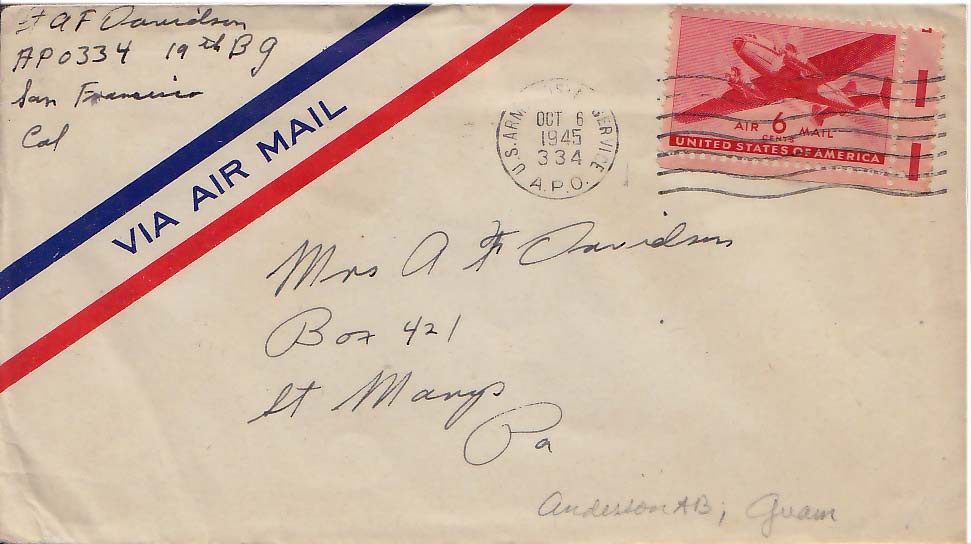 Lt A F Davidson
APO 334 19th B G
San Francisco
Cal
VIA AIR MAIL
U.S. ARMY POSTAL SERVICE
OCT 6
1945
334
A.P.O.
AIR 6 MAIL
CENTS
UNITED STATES OF AMERICA
Mrs A F Davidson
Box 421
St Marys
Pa
Anderson AB, Guam